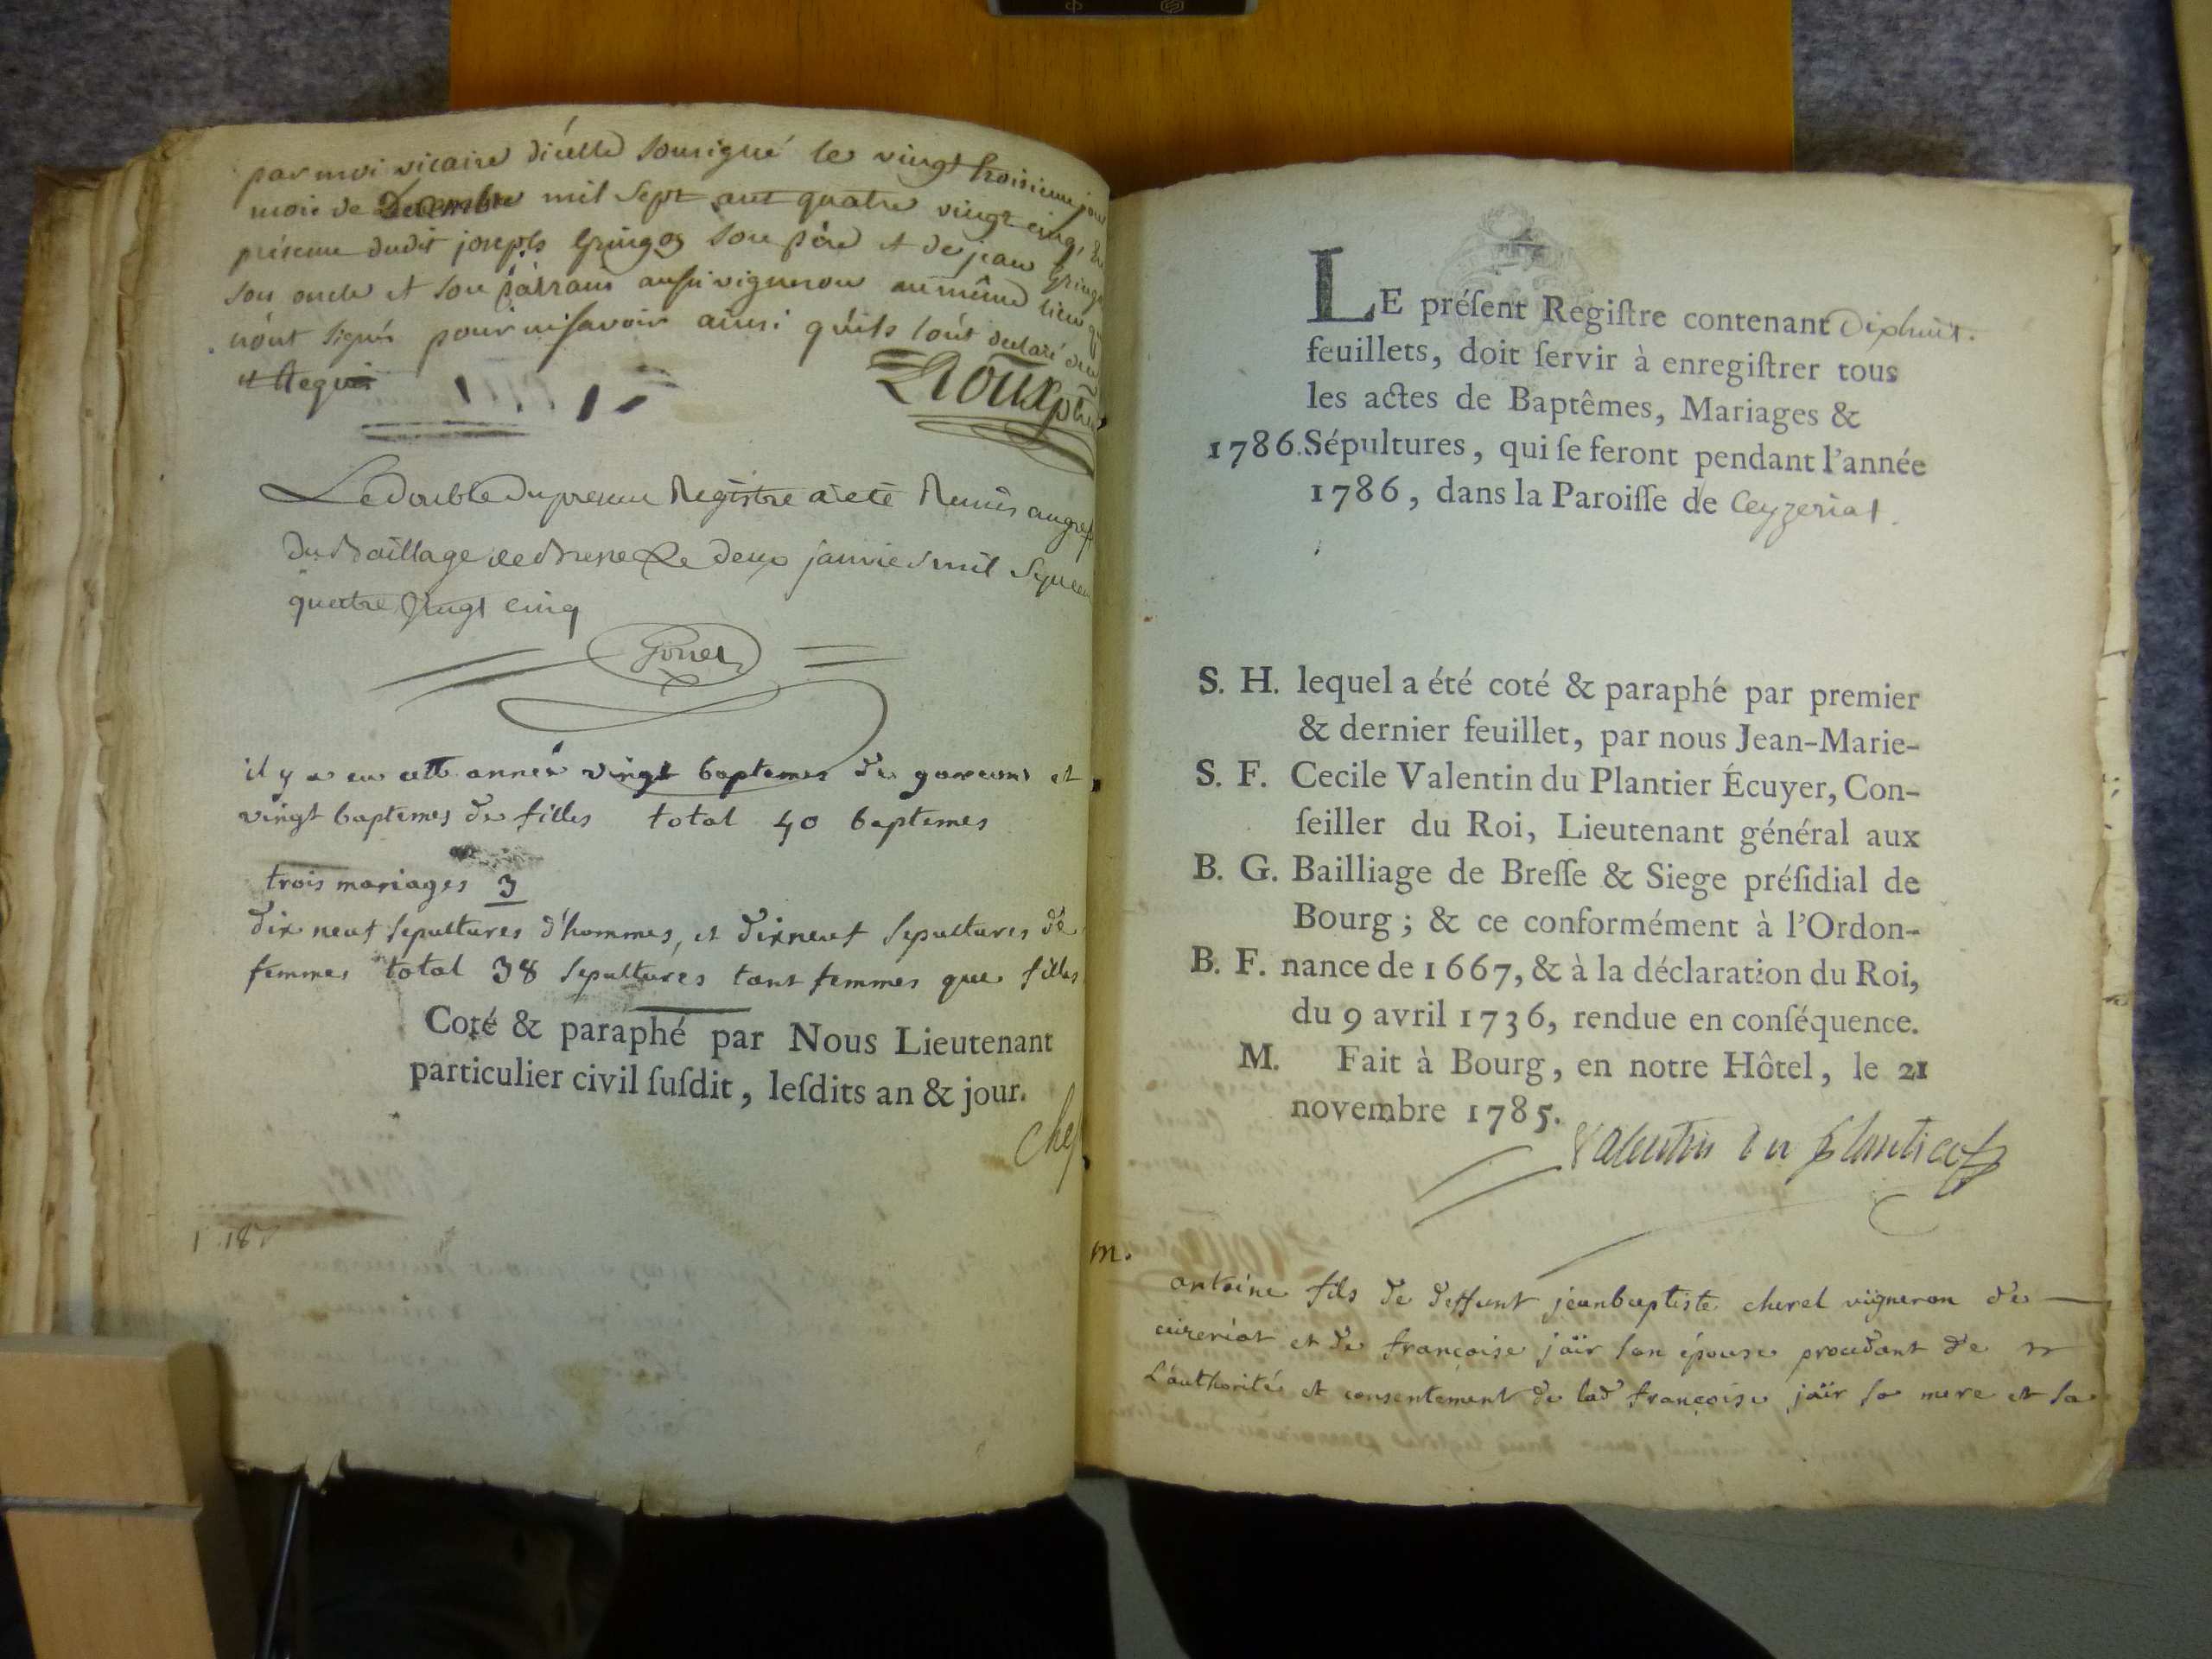 par moi vicaire d'icelle sousigné le vingt troisieme jour
mois de Decembre mil sept cent quatre vingt cinq, en
présence dudit joseph gringoz son père et de jean gringoz
son oncle et son parrain aussi vigneron au même lieu qui
n'ont signés pour ne savoir ainsi qu'ils l'ont declaré de ce
et requis
Roux ptre
Le double du present Registre a ete Remis au greffe
du Baillage de Bresse Le deux janvier mil sept cent
quatre vingt cinq
il y a eu cette année vingt baptemes de garcons et
vingt baptemes de filles total 40 baptemes
trois mariages 3
dix neuf sepultures d'hommes, et dixneuf sepultures de
femmes total 38 sepultures tant femmes que filles
Coté & paraphé par Nous Lieutenant
particulier civil ſuſdit, leſdits an & jour.
LE préſent Regiſtre contenant dixhuit.
feuillets, doit ſervir à enregiſtrer tous
les actes de Baptêmes, Mariages &
1786. Sépultures, qui ſe feront pendant l'année
1786, dans la Paroiſſe de Ceyzeriat.
S. H. lequel a été coté & paraphé par premier
& dernier feuillet, par nous Jean-Marie-
S. F. Cecile Valentin du Plantier Écuyer, Con-
ſeiller du Roi, Lieutenant général aux
B. G. Bailliage de Breſſe & Siege préſidial de
Bourg ; & ce conformément à l'Ordon-
B. F. nance de 1667, & à la déclaration du Roi,
du 9 avril 1736, rendue en conſéquence.
M. Fait à Bourg, en notre Hôtel, le 21
novembre 1785.
Valentin du plantier
m.
antoine fils de deffunt jeanbaptiste cherel vigneron de
ceizeriat et de françoise jaïr son épouse procedant de
L'authorité et consentement de lad françoise jaïr sa mere et sa